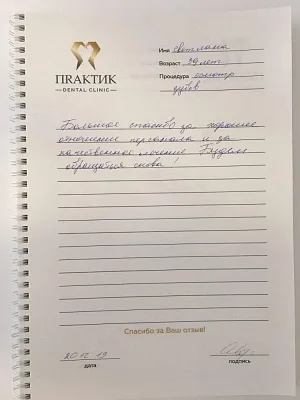 ПRAКТИК
—DENTAL CLINIC—
Имя Светлана
Возраст 39 лет
Процедура осмотр
зубов
Большое спасибо за хорошее
отношение персонала и за
качественное лечение Будем
обращаться снова!
Спасибо за Ваш отзыв!
20.12.19
дата
подпись